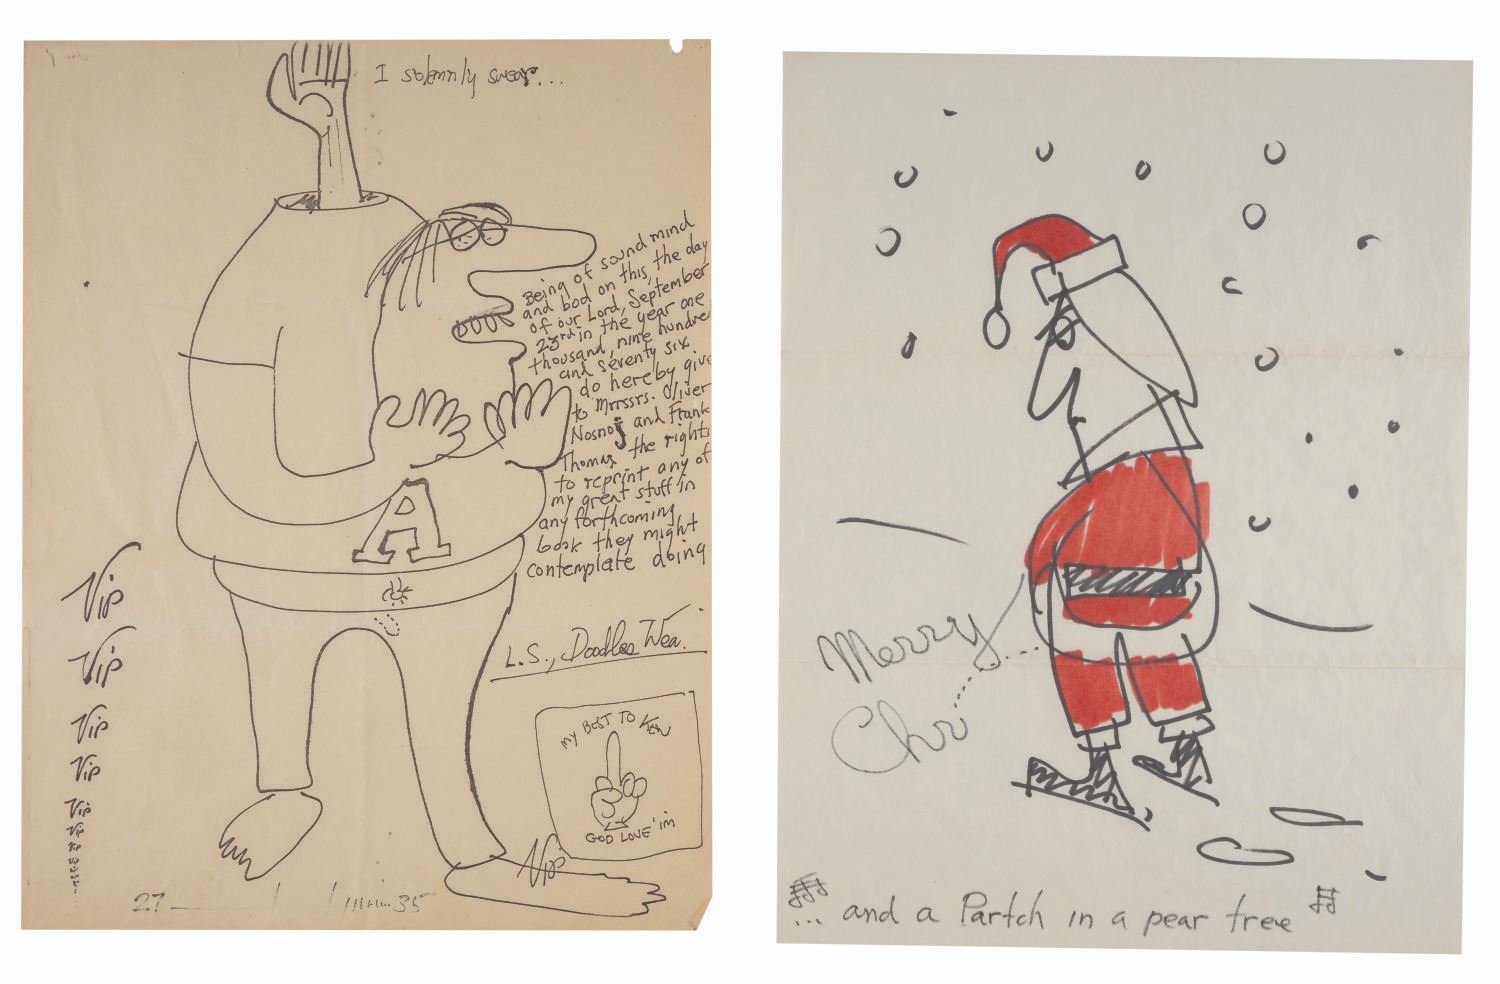 I solemnly swear...
Being of sound mind
and bod on this, the day
of our Lord, September
23rd in the year one
thousand, nine hundre
and seventy six
do hereby give
to Mrrssrs. Oliver
Nosnoj and Frank
Thomas the rights
to reprint any of
my great stuff in
any forthcoming
book they might
contemplate doing
L.S., Doodles Wea.
MY BEST TO KEN
GOD LOVE 'IM
Vip
Vip
Vip
Vip
Vip
Vip
Vip
Vip
27
35
Merry
Chr
... and a Partch in a pear tree
A